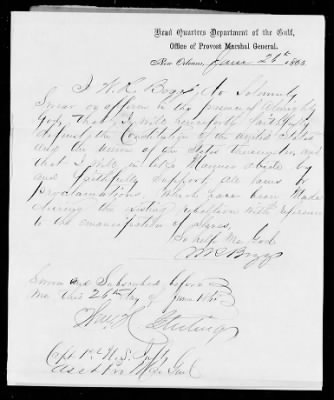 Head Quarters Department of the Gulf,
Office of Provost Marshal General.
New Orleans, June 26th 1865
I W. R. Boggs, do Solemnly
Swear or affirm in the presence of Almighty
God, that I will henceforth faithfully
defend the Constitution of the United States
and the Union of the States thereunder, and
that I will in like Manner abide by
and faithfully support all laws &
Proclamations, which have been Made
during the existing rebellion with reference
to the emancipation of slaves,
So help Me God
W R Boggs
Sworn and Subscribed before
Me this 26th day of June 1865
Stirling
Capt 1st U. S. Inft